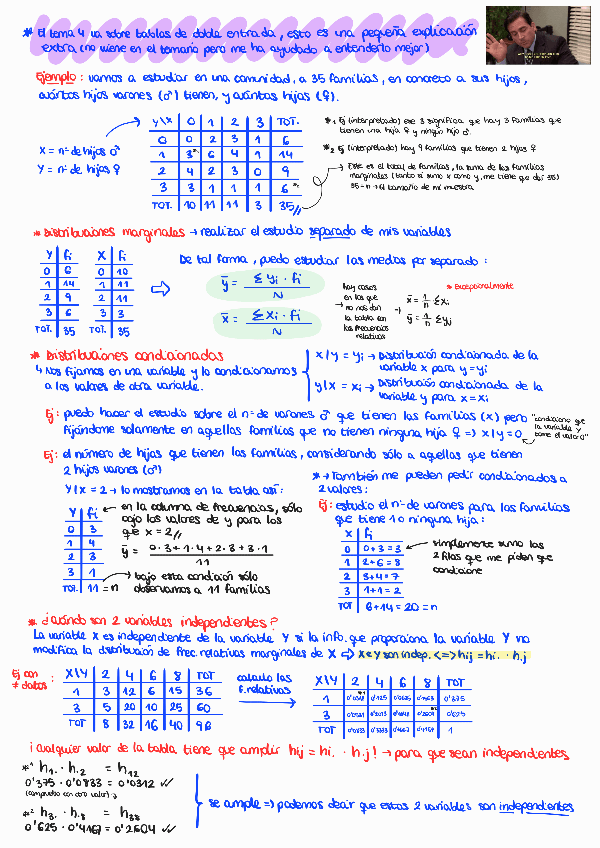 * El tema 4 va sobre tablas de doble entrada, esto es una pequeña explicación
extra (no viene en el temario pero me ha ayudado a entenderlo mejor)
Ejemplo: vamos a estudiar en una comunidad, a 35 familias, en concreto a sus hijos,
cuántos hijos varones (♂) tienen, y cuántas hijas (♀).
X = nº de hijos ♂
Y = nº de hijas ♀
Y\X 0 1 2 3 TOT.
0 0 2 3 1 6
1 3*¹ 6 4 1 14
2 4 2 3 0 9
3 3 1 1 1 6
TOT. 10 11 11 3 35//
*1 Ej (interpretado) ese 3 significa que hay 3 familias que
tienen una hija ♀ y ningún hijo ♂.
*2 Ej (interpretado) hay 9 familias que tienen 2 hijas ♀
→ Ese es el total de familias, la suma de las familias
marginales (tanto si sumo x como y, me tiene que dar 35)
35 = n → el tamaño de mi muestra
* Distribuciones marginales → realizar el estudio separado de mis variables
Y fi
0 6
1 14
2 9
3 6
TOT. 35
X fi
0 10
1 11
2 11
3 3
TOT. 35
De tal forma, puedo estudiar las medias por separado:
ȳ = Σ yi · fi / N
x̄ = Σ xi · fi / N
hay casos
en los que
no nos dan
la tabla con
las frecuencias
relativas
* Excepcionalmente
x̄ = 1/n Σxi
ȳ = 1/n Σyj
* Distribuciones condicionadas
↳ Nos fijamos en una variable y la condicionamos
a los valores de otra variable.
x/y = yi → Distribución condicionada de la
variable x para y = yi
y/x = xi → Distribución condicionada de la
variable y para x = xi
Ej: puedo hacer el estudio sobre el nº de varones ♂ que tienen las familias (x) pero
fijándome solamente en aquellas familias que no tienen ninguna hija ♀ => x/y=0
"condiciono que
la variable y
tome el valor 0"
Ej: el número de hijas que tienen las familias, considerando sólo a aquellas que tienen
2 hijos varones (♂)
Y/x = 2 → lo mostramos en la tabla así:
Y fi
0 3
1 4
2 3
3 1
TOT. 11 = n
← en la columna de frecuencias, sólo
cojo los valores de y para los
que x = 2//
ȳ = 0·3 + 1·4 + 2·3 + 3·1 / 11
→ bajo esta condición sólo
observamos a 11 familias
* → También me pueden pedir condicionados a
2 valores:
Ej: estudio el nº de varones para las familias
que tiene 1 o ninguna hija:
X fi
0 0+3 = 3
1 2+6 = 8
2 3+4 = 7
3 1+1 = 2
TOT 6+14 = 20 = n
simplemente sumo las
2 filas que me piden que
condicione
* ¿Cuándo son 2 variables independientes?
La variable X es independiente de la variable Y si la info. que proporciona la variable Y no
modifica la distribución de frec. relativas marginales de X => X e Y son indep. <=> hij = hi. · h.j
Ej con
≠ datos:
X\Y 2 4 6 8 TOT
1 3 12 6 15 36
3 5 20 10 25 60
TOT 8 32 16 40 96
calculo las
f. relativas
X\Y 2 4 6 8 TOT
1 0'0312 0'125 0'0625 0'1563 0'375
3 0'0521 0'625
TOT 0'0833 0'3333 0'1667 0'4167 1
¡Cualquier valor de la tabla tiene que cumplir hij = hi. · h.j! → para que sean independientes
*¹ h1. · h.2 = h12
0'375 · 0'0833 = 0'0312 ✓✓
(compruebo con otro valor) ↓
*² h3. · h.8 = h38
0'625 · 0'4167 = 0'2604 ✓✓
se cumple => podemos decir que estas 2 variables son independientes